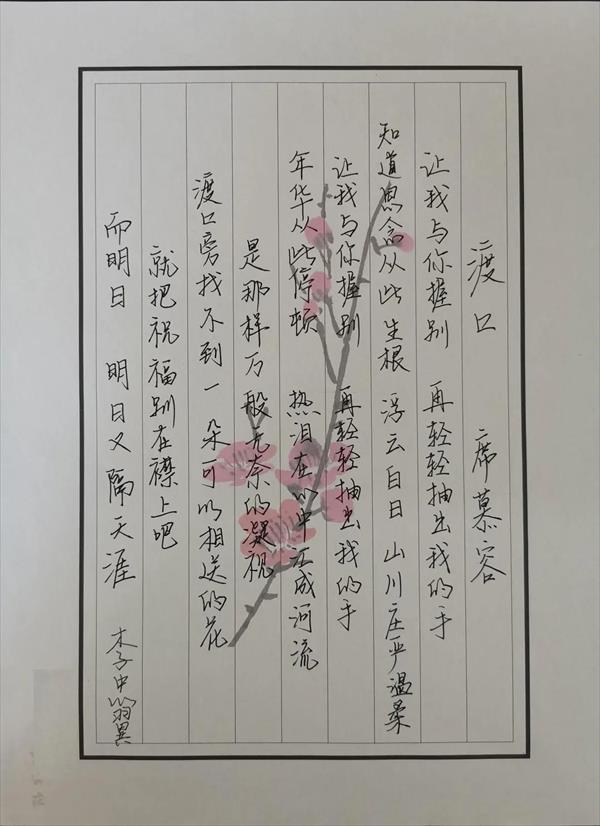 渡口 席慕容
让我与你握别 再轻轻抽出我的手
知道思念从此生根 浮云白日 山川庄严温柔
让我与你握别 再轻轻抽出我的手
年华从此停顿 热泪在心中汇成河流
是那样万般无奈的凝视
渡口旁找不到一朵可以相送的花
就把祝福别在襟上吧
而明日 明日又隔天涯 李中翼